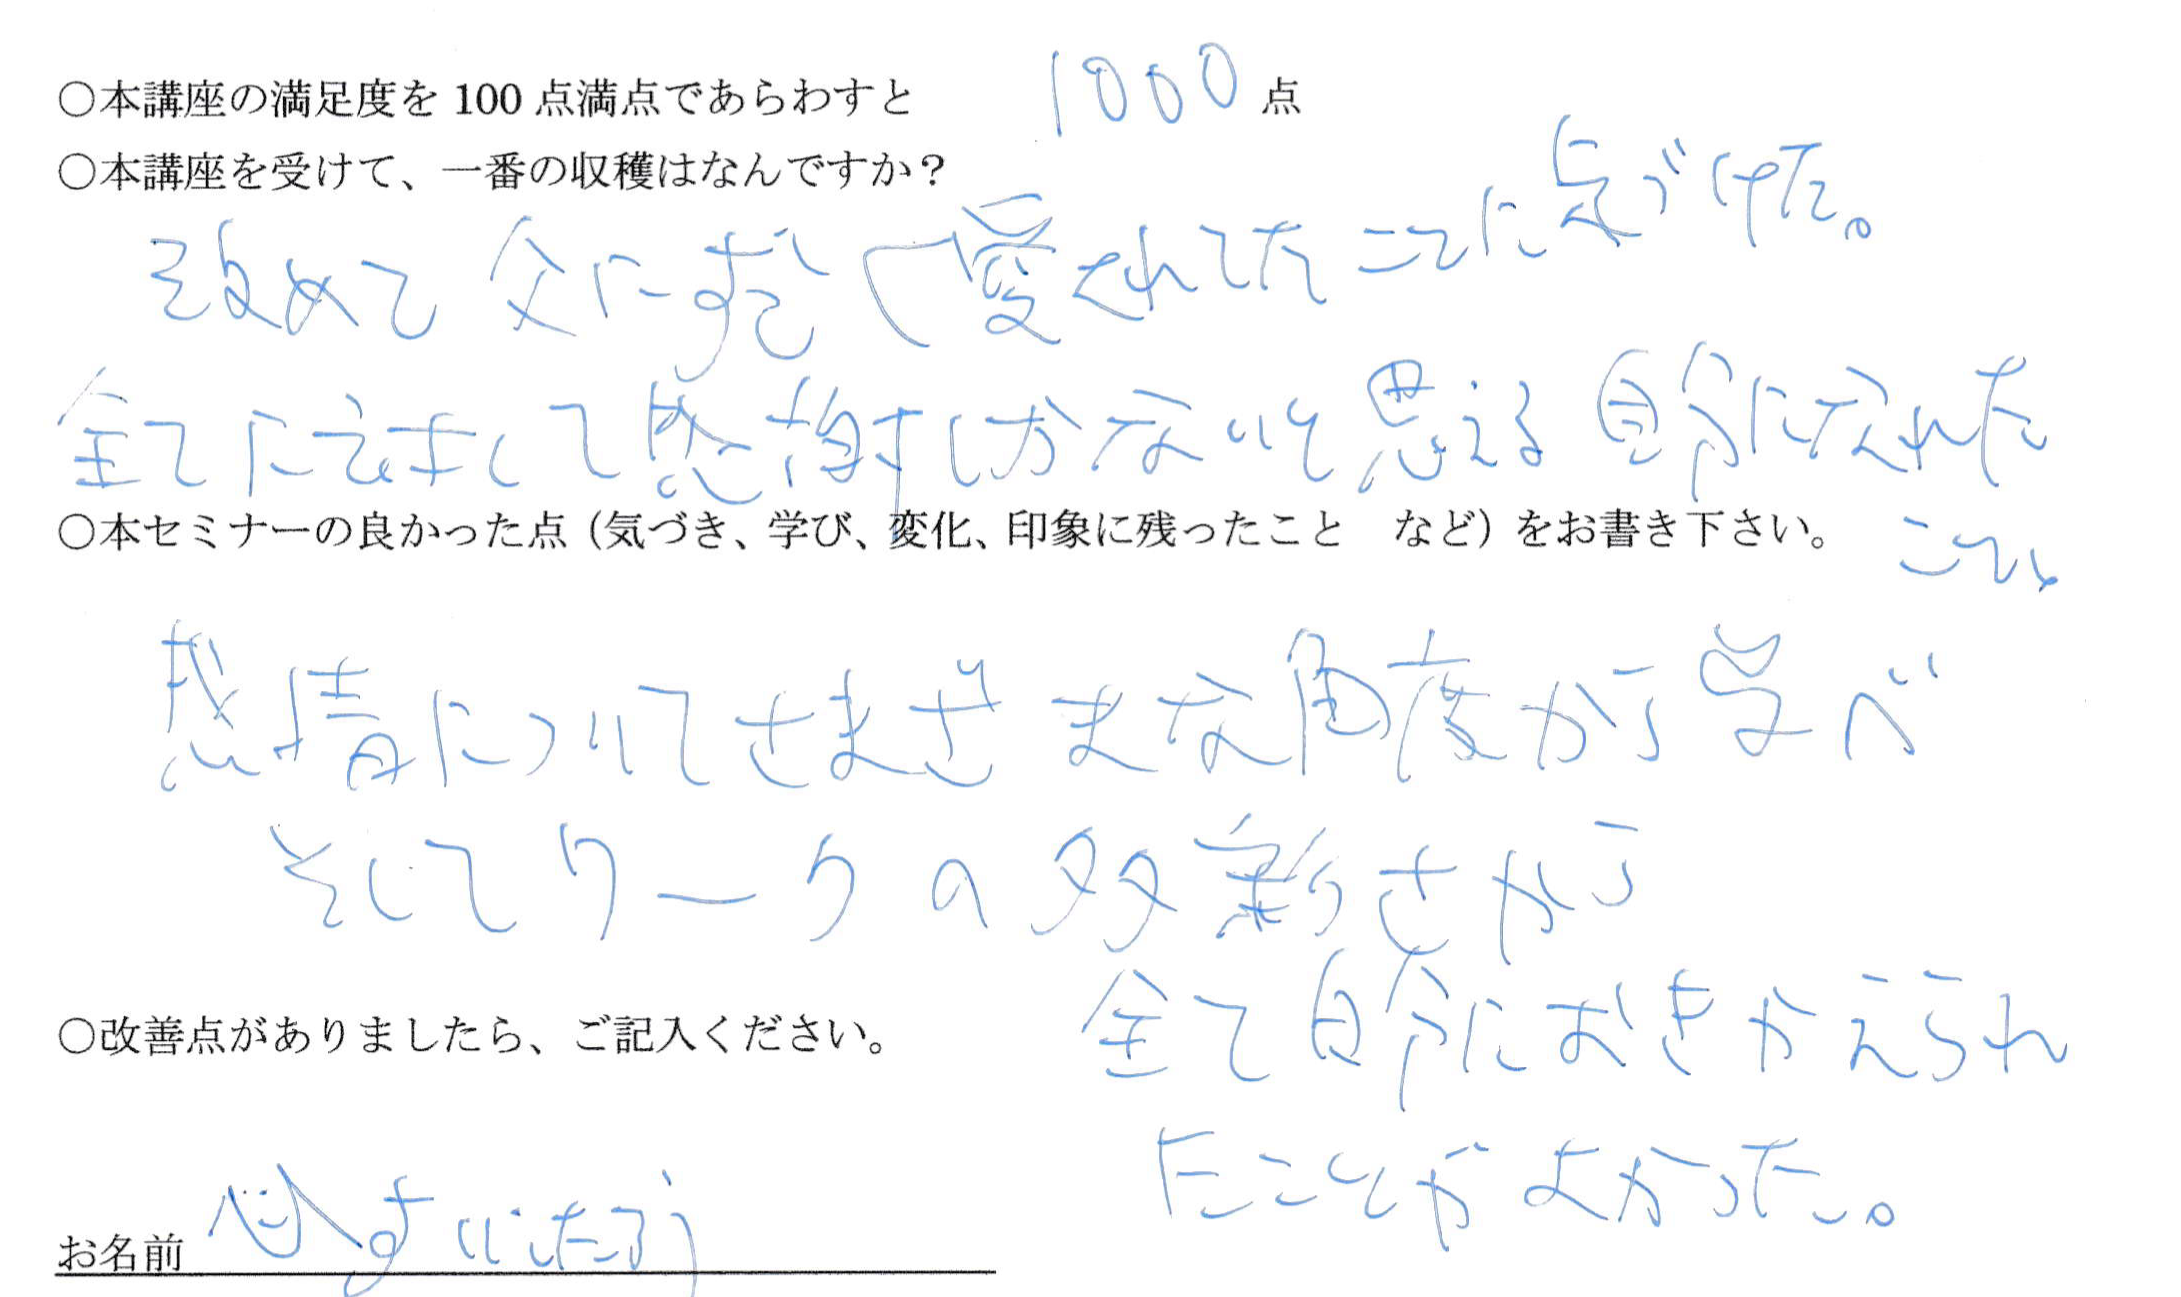 ○本講座の満足度を 100 点満点であらわすと 1000 点
○本講座を受けて、一番の収穫はなんですか？
改めて 父にすごく愛されてたことに気づけた。
全てにたいして感謝しかないと思える自分になれた
こと。
○本セミナーの良かった点（気づき、学び、変化、印象に残ったこと　など）をお書き下さい。
感情についてさまざまな角度から学べ
そしてワークの多彩さから
全て自分におきかえられ
たことがよかった。
○改善点がありましたら、ご記入ください。
お名前